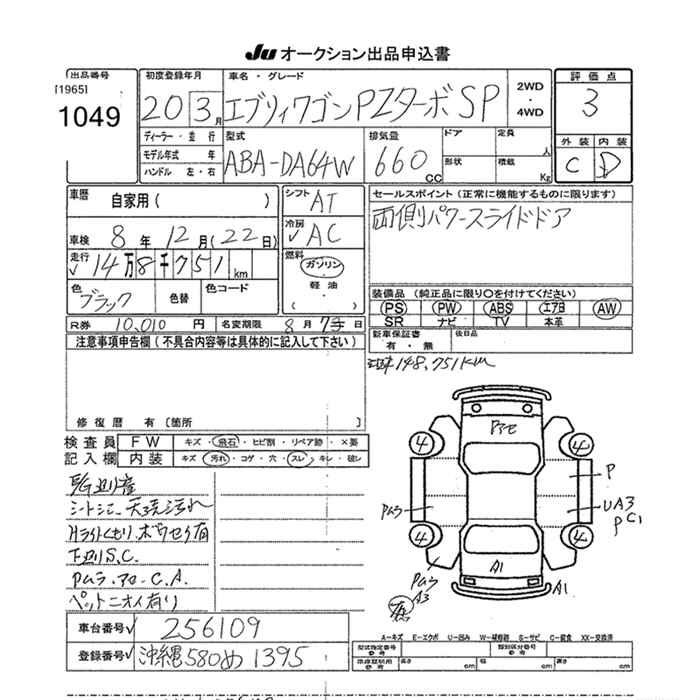 Ju オークション出品申込書
出品番号
[1965]
1049
初度登録年月
20 3月
車名・グレード
エブリィワゴン PZターボ SP
2WD
・
4WD
評価点
3
ディーラー・並行
モデル年式 年
ハンドル 左・右
型式
ABA-DA64W
排気量
660 CC
ドア
形状
定員
人
積載
Kg
外装 内装
C D
車歴
自家用( )
車検 8年 12月(22日)
走行 ✓ 14万8千751 km
色
ブラック
色替
色コード
R券 10,010 円 名変期限 8月 日
シフト AT
冷房 ✓ AC
燃料
ガソリン
・
軽油
・
( )
セールスポイント(正常に機能するものに限ります)
両側パワースライドドア
装備品(純正品に限り○を付けてください)
PS PW ABS エアB AW
SR ナビ TV 本革
新車保証書
有・無
後日品
148,751km
注意事項申告欄(不具合内容等は具体的に記入して下さい)
修復歴 有〔箇所 〕
検査員 FW キズ・飛石・ヒビ割・リペア跡・×要
記入欄 内装 キズ・汚れ・コゲ・穴・スレ・キレ・破レ
シートシミ、天張汚れ
Hライトくもり、ボウセイ有
下廻りS.C.
Pムラ・アセ・C.A.
ペットニオイ有り
車台番号 ✓ 256109
登録番号 ✓ 沖縄 580 め 1395
Pアセ
4
4
P
Pムラ
UA3
PC1
4
4
A1
Pムラ
A3
A1
A-キズ E-エクボ U-凹み W-補修跡 S-サビ C-腐食 XX-交換済
型式指定番号
参考
類別区分番号
参考
冷凍庫
参考
長さ cm 幅 cm 高さ cm